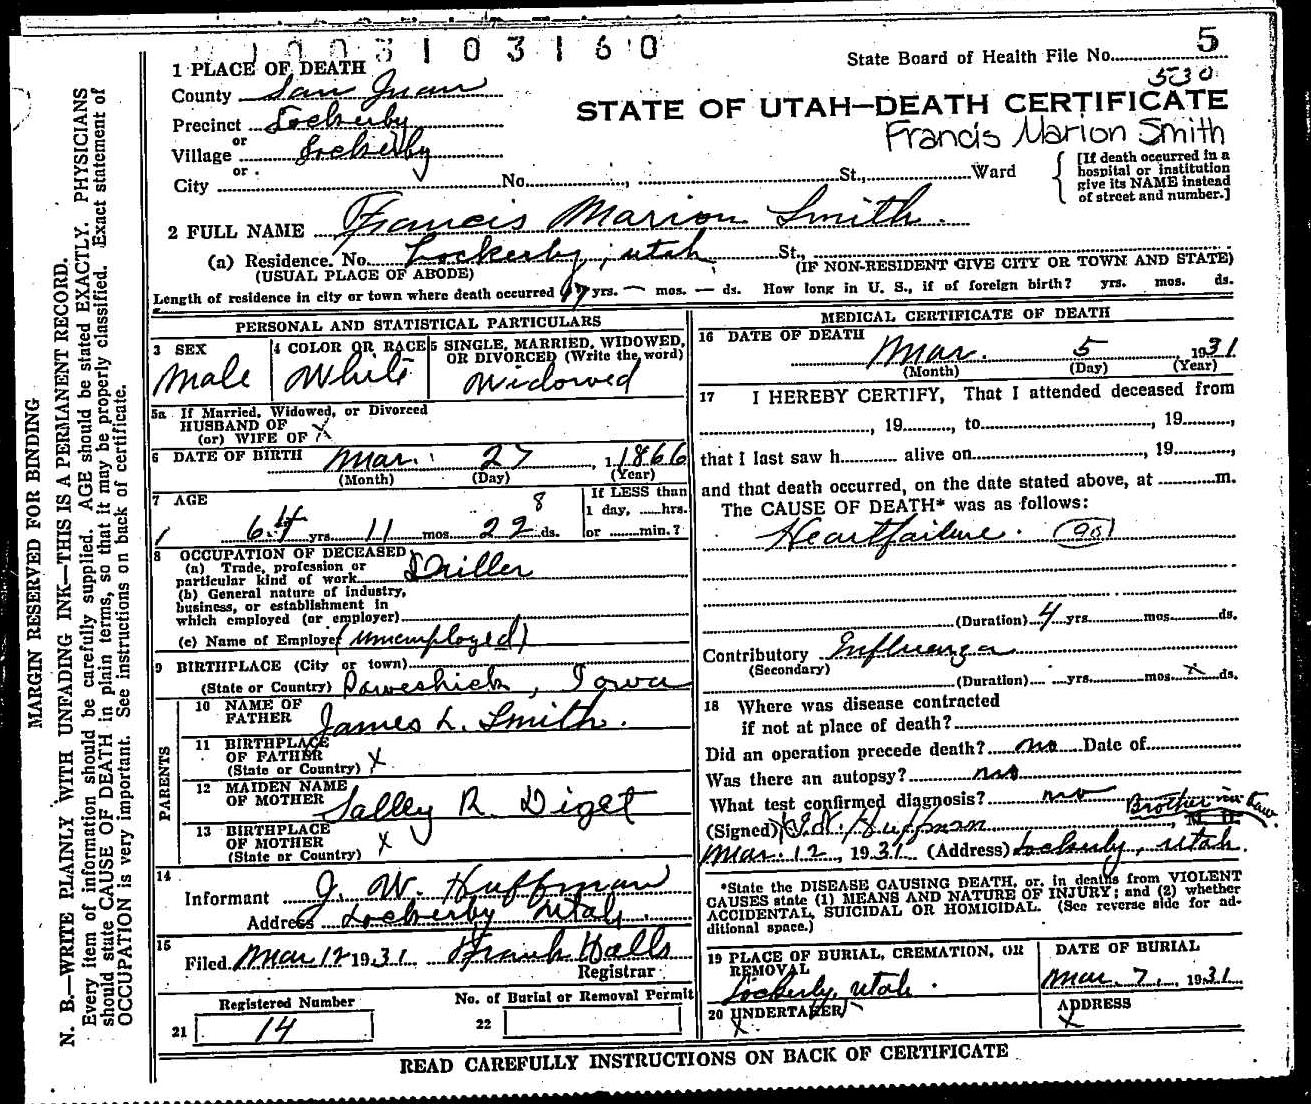 1 0 0 3 1 0 3 1 6 0
State Board of Health File No. 5
530
1 PLACE OF DEATH
County San Juan
STATE OF UTAH—DEATH CERTIFICATE
Precinct Lockerby
Francis Marion Smith
or
Village Lockerby
or
City No. St., Ward
[If death occurred in a hospital or institution give its NAME instead of street and number.]
2 FULL NAME Francis Marion Smith.
(a) Residence. No. Lockerby, Utah St.,
(USUAL PLACE OF ABODE) (IF NON-RESIDENT GIVE CITY OR TOWN AND STATE)
Length of residence in city or town where death occurred yrs. — mos. — ds. How long in U. S., if of foreign birth? yrs. mos. ds.
PERSONAL AND STATISTICAL PARTICULARS
3 SEX
Male
4 COLOR OR RACE
White
5 SINGLE, MARRIED, WIDOWED,
OR DIVORCED (Write the word)
Widowed
5a If Married, Widowed, or Divorced
HUSBAND OF
(or) WIFE OF X
6 DATE OF BIRTH Mar. 27, 1866
(Month) (Day) (Year)
7 AGE
64 yrs. 11 mos. 22 8 ds.
If LESS than
1 day, hrs.
or min.?
8 OCCUPATION OF DECEASED
(a) Trade, profession or
particular kind of work Driller
(b) General nature of industry,
business, or establishment in
which employed (or employer)
(c) Name of Employer (Unemployed)
9 BIRTHPLACE (City or town)
(State or Country) Poweshiek, Iowa
PARENTS
10 NAME OF
FATHER James L. Smith.
11 BIRTHPLACE
OF FATHER
(State or Country) X
12 MAIDEN NAME
OF MOTHER Salley R. Diget
13 BIRTHPLACE
OF MOTHER
(State or Country) X
14
Informant J. W. Huffman
Address Lockerby Utah.
15
Filed Mar 12 1931. Frank Halls
Registrar
Registered Number
21 14
No. of Burial or Removal Permit
22
MEDICAL CERTIFICATE OF DEATH
16 DATE OF DEATH
Mar. 5, 1931
(Month) (Day) (Year)
17 I HEREBY CERTIFY, That I attended deceased from
, 19 , to , 19 ,
that I last saw h alive on , 19 ,
and that death occurred, on the date stated above, at m.
The CAUSE OF DEATH* was as follows:
Heart failure.
(Duration) 4 yrs. mos. ds.
Contributory Influenza
(Secondary)
(Duration) yrs. mos. X ds.
18 Where was disease contracted
if not at place of death?
Did an operation precede death? no Date of
Was there an autopsy? no
What test confirmed diagnosis? no
Brother in law.
(Signed) Huffman, M. D.
Mar. 12, 1931. (Address) Lockerby, Utah.
*State the DISEASE CAUSING DEATH, or, in deaths from VIOLENT
CAUSES state (1) MEANS AND NATURE OF INJURY; and (2) whether
ACCIDENTAL, SUICIDAL OR HOMICIDAL. (See reverse side for ad-
ditional space.)
19 PLACE OF BURIAL, CREMATION, OR
REMOVAL
Lockerby, Utah.
DATE OF BURIAL
Mar. 7, 1931
20 UNDERTAKER
X
ADDRESS
X
READ CAREFULLY INSTRUCTIONS ON BACK OF CERTIFICATE
MARGIN RESERVED FOR BINDING
N. B.—WRITE PLAINLY WITH UNFADING INK—THIS IS A PERMANENT RECORD.
Every item of information should be carefully supplied. AGE should be stated EXACTLY. PHYSICIANS
should state CAUSE OF DEATH in plain terms, so that it may be properly classified. Exact statement of
OCCUPATION is very important. See instructions on back of certificate.